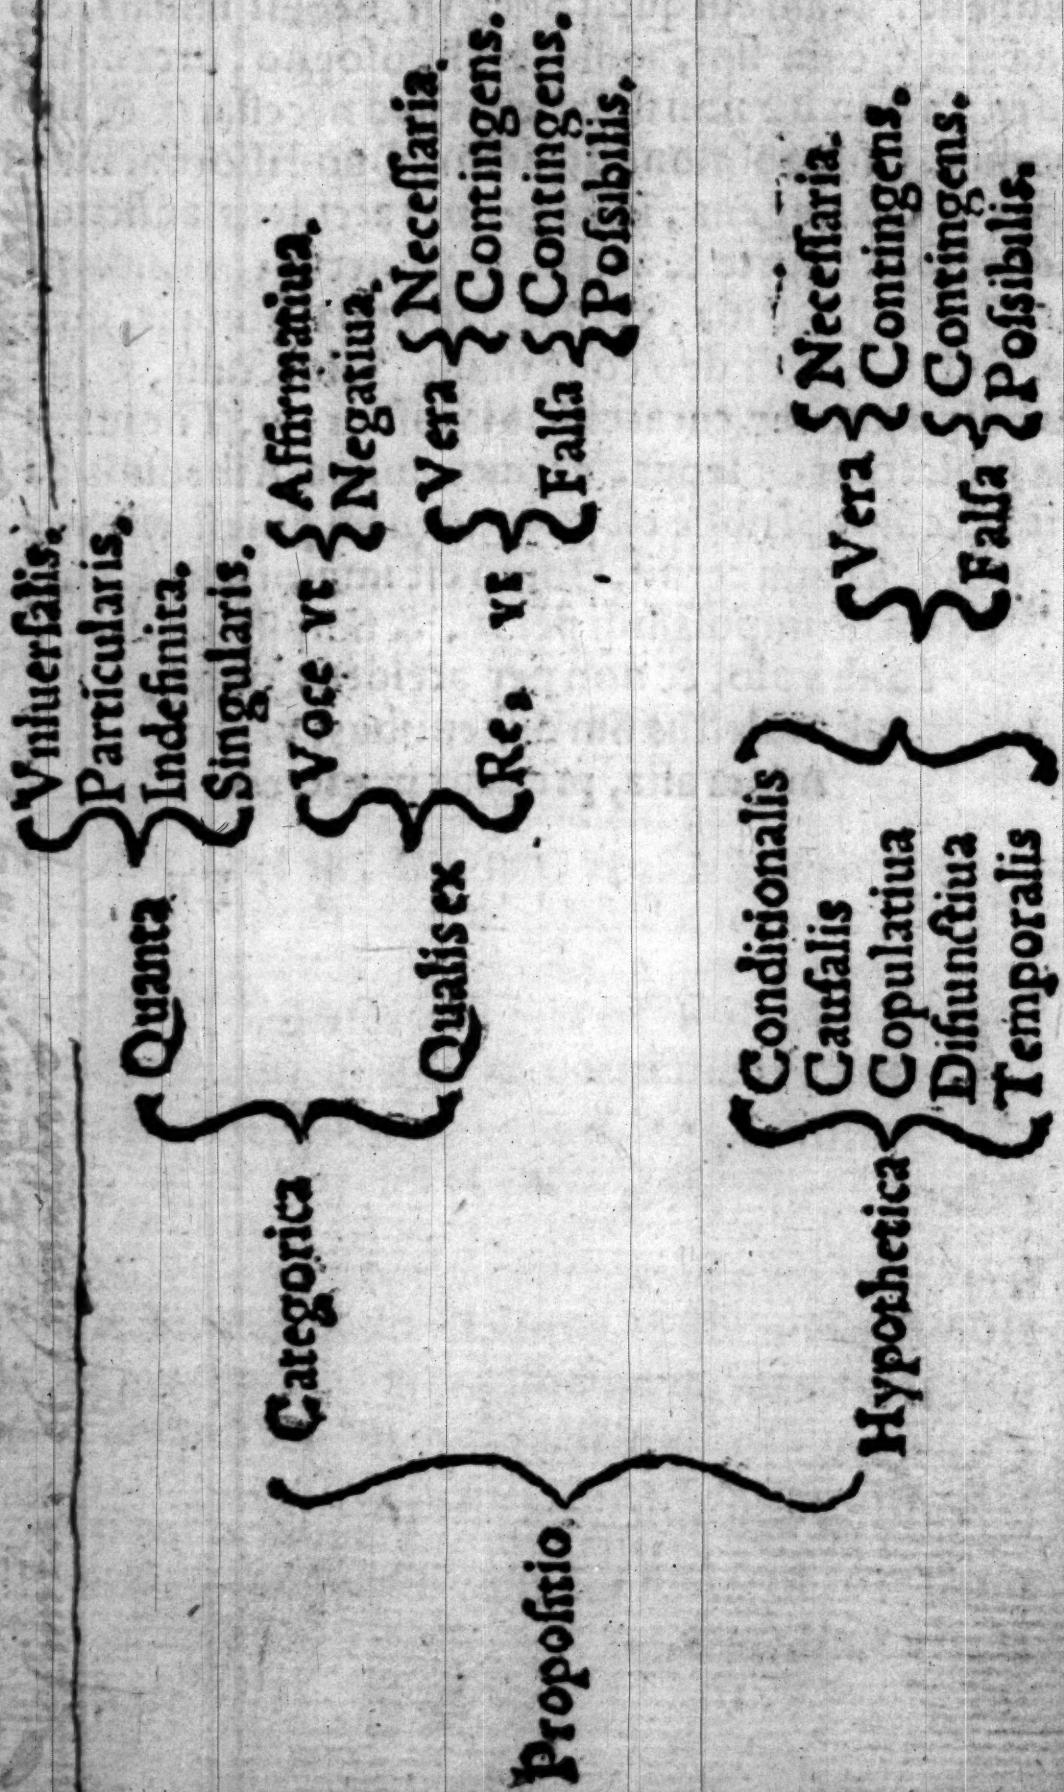 Propoſitio
Categorica
Quanta
Vniuerſalis.
Particularis.
Indefinita.
Singularis.
Qualis ex
Voce vt
Affirmatiua.
Negatiua.
Re, vt
Vera
Neceſſaria.
Contingens.
Falſa
Contingens.
Poſsibilis.
Hypothetica
Conditionalis
Cauſalis
Copulatiua
Diſiunctiua
Temporalis
Vera
Neceſſaria.
Contingens.
Falſa
Contingens.
Poſsibilis.